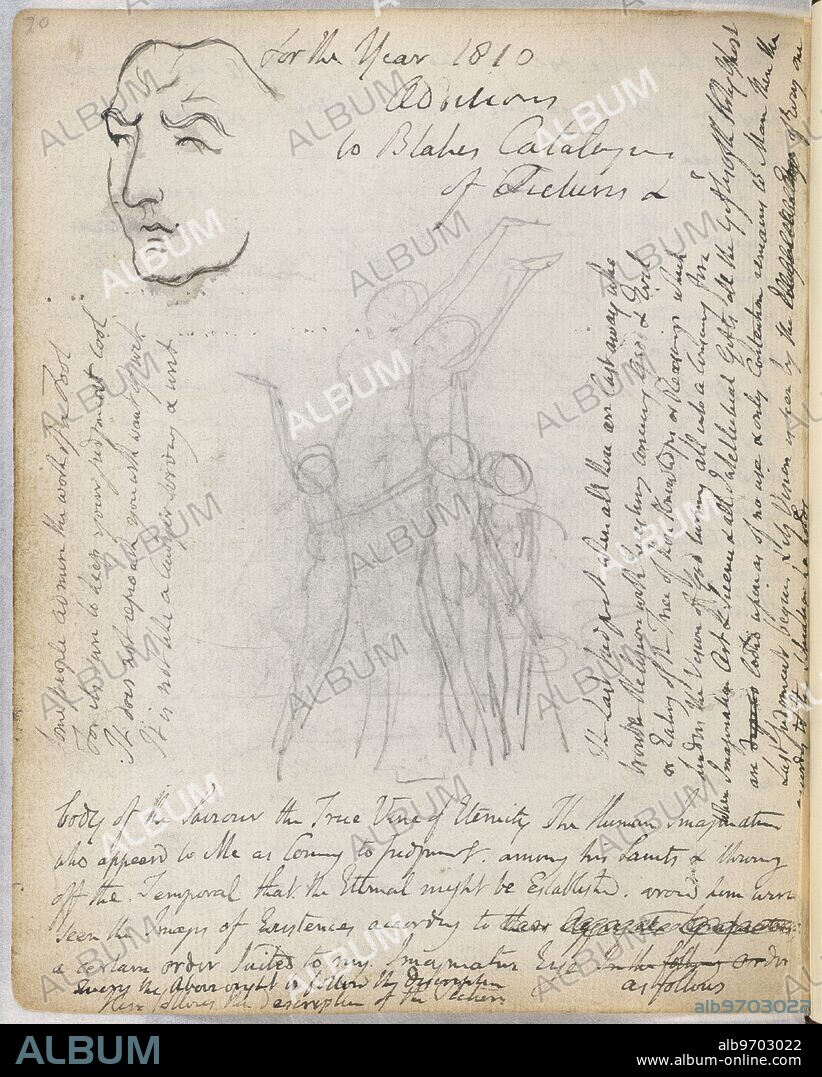 70
For the Year 1810
Additions
to Blakes Catalogue
of Pictures &
Some people admire the work of a Fool
For its sure to keep your judgment cool
It does not reproach you with want of wit
It is not like a lawyer serving a writ
The Last Judgment when all those are Cast away who
trouble Religion with Questions concerning Good & Evil
or Eating of the Tree of those Knowledges or Reasonings which
hinder the Vision of God turning all into a Consuming fire
When Imagination Art & Science & all Intellectual Gifts all the Gifts of the Holy Ghost
are lookd upon as of no use & only Contention remains to Man then the
Last Judgment begins & its Vision is seen by the Eye of Every one
according to the situation he holds
body of the Saviour the True Vine of Eternity The Human Imagination
who appeard to Me as Coming to Judgment. among his Saints & throwing
off the Temporal that the Eternal might be Establishd. around him were
seen the Images of Existences according to
a certain order Suited to my Imaginative Eye In the following order
as follows
Query the Above ought to follow the description
Here follows the description of the Picture
ALBUM
alb9703022
ALBUM
alb9703022
www.album-online.com